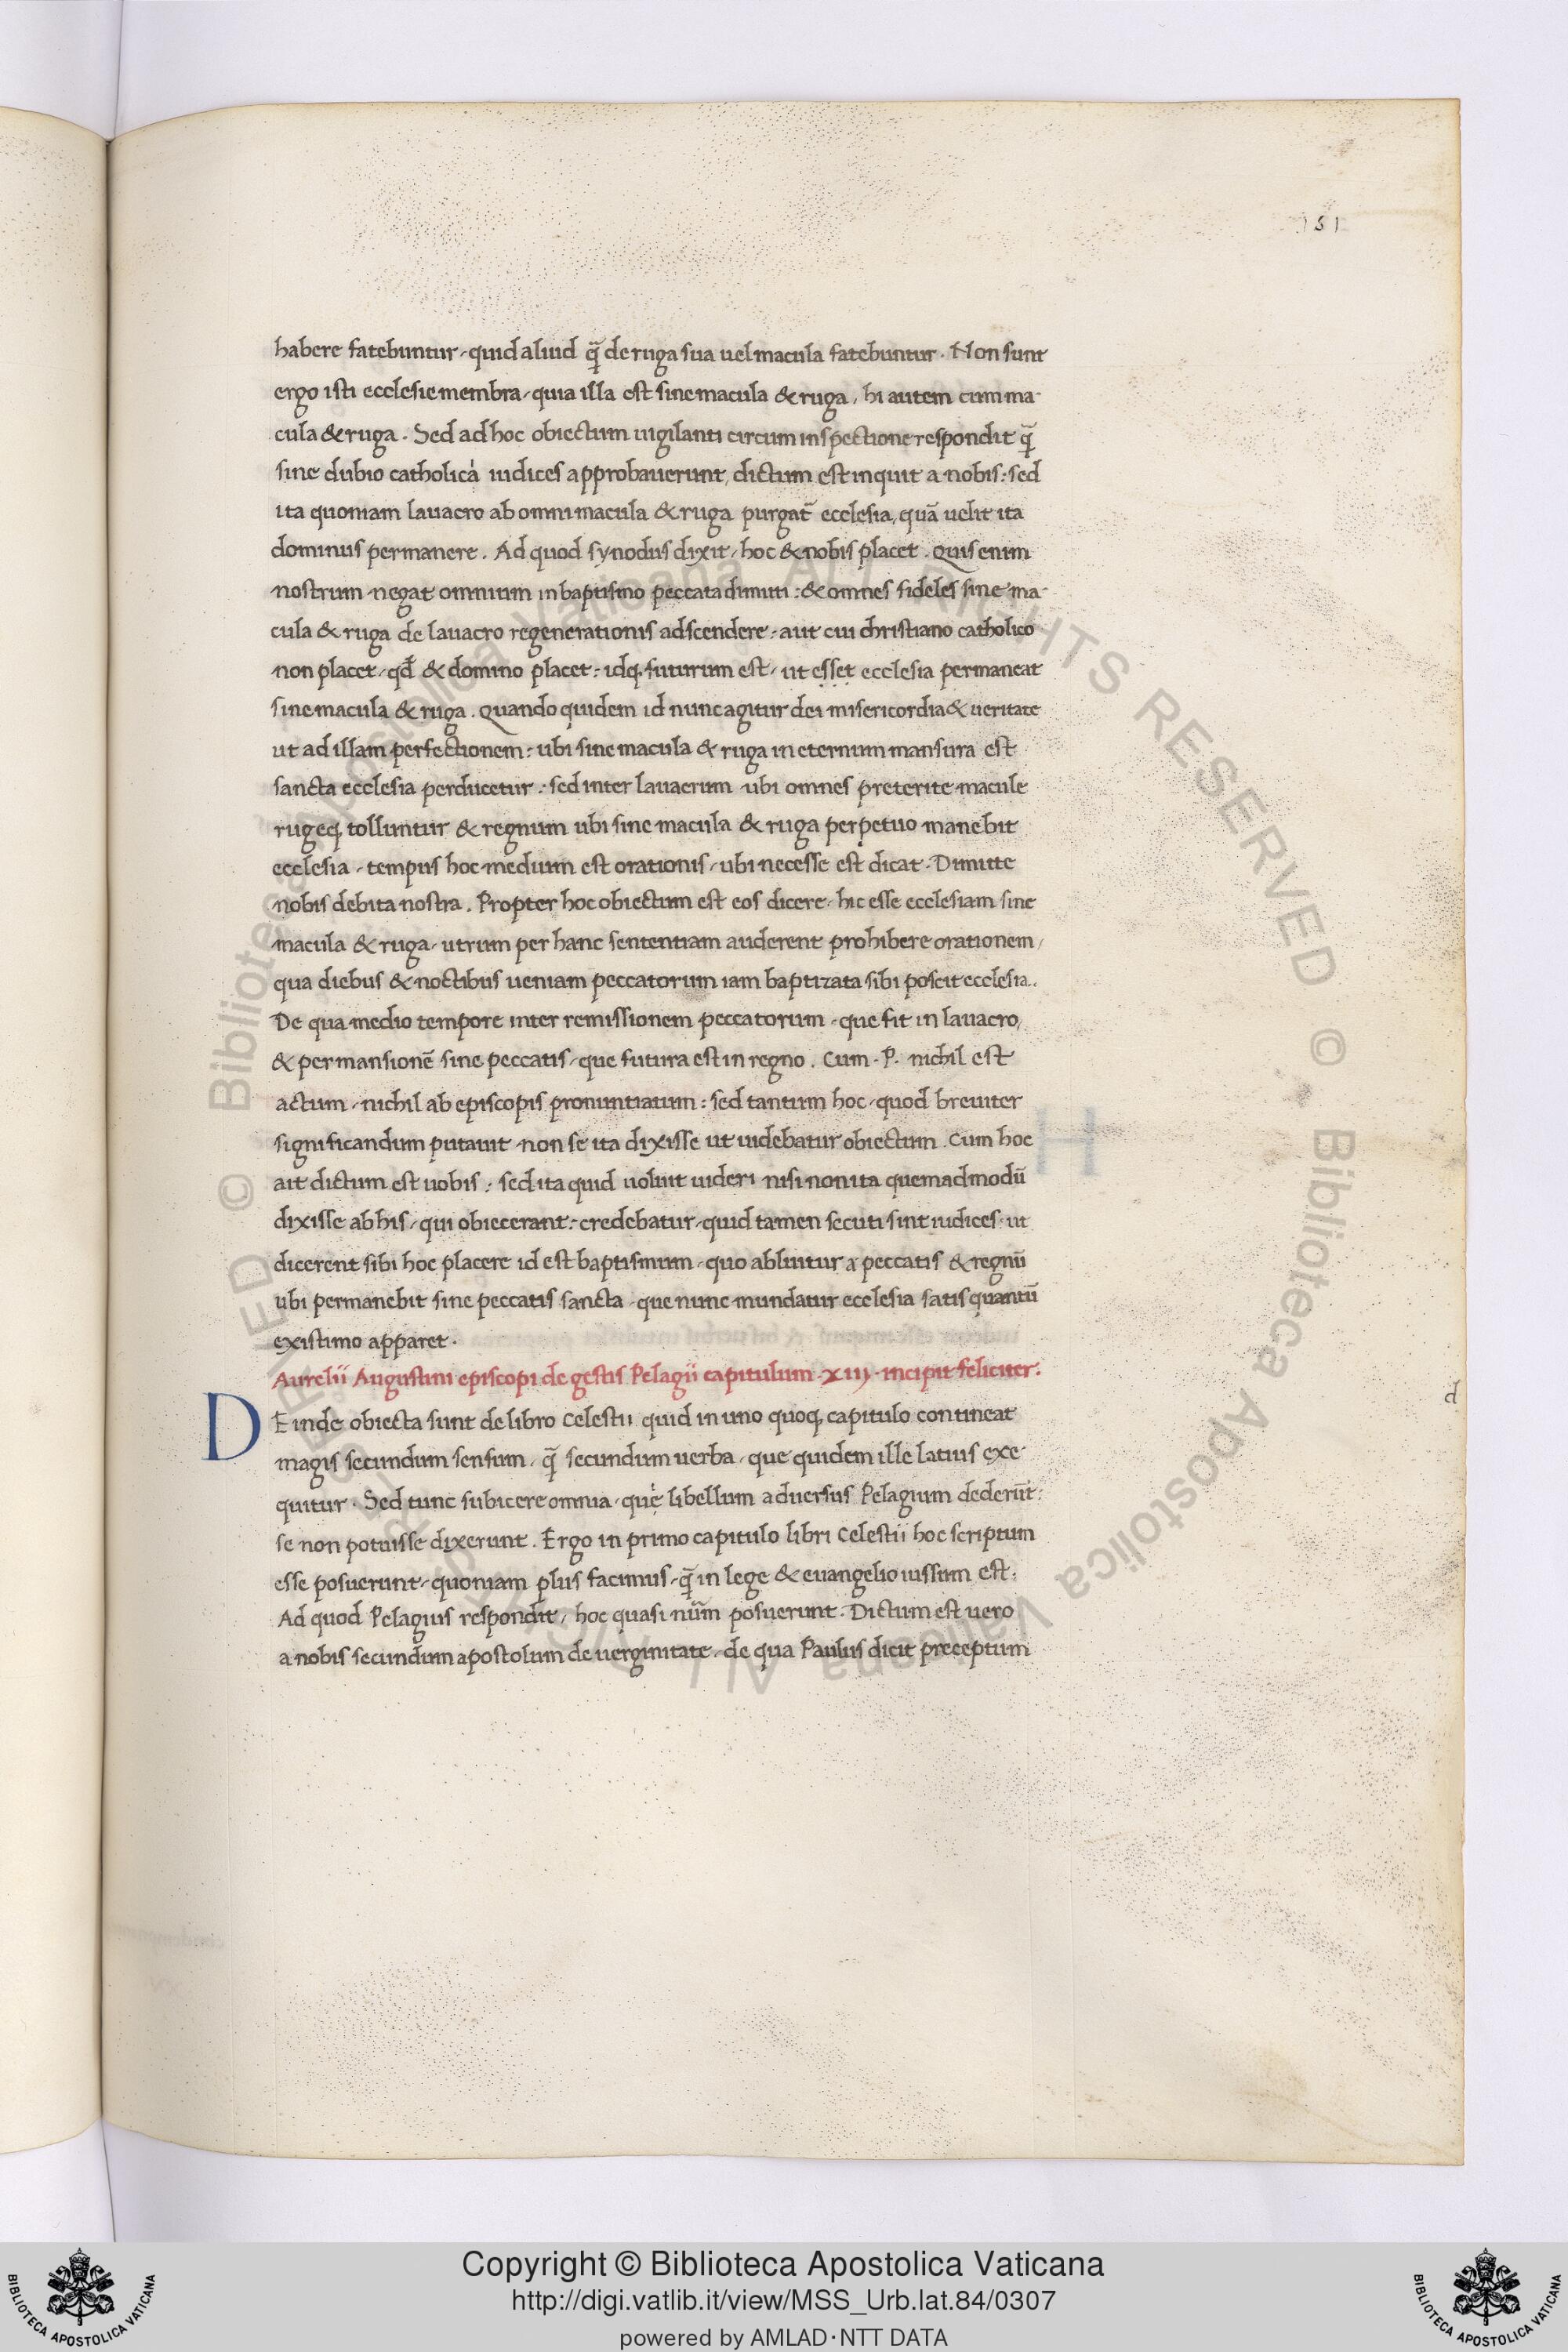 151
habere fatebuntur, quid aliud q̃ de ruga sua uel macula fatebuntur. Non sunt
ergo isti ecclesie membra, quia illa est sine macula & ruga, hi autem cum ma-
cula & ruga. Sed ad hoc obiectum uigilanti circum inspectione respondit q̃
sine dubio catholica iudices approbauerunt, dictum est inquit a nobis: sed
ita quoniam lauacro ab omni macula & ruga purgat̃ ecclesia, quã uelit ita
dominus permanere. Ad quod synodus dixit, hoc & nobis placet. Quis enim
nostrum negat omnium in baptismo peccata dimitti: & omnes fideles sine ma-
cula & ruga de lauacro regenerationis adscendere, aut cui christiano catholico
non placet, qđ & domino placet: idq; futurum est, ut esset ecclesia permaneat
sine macula & ruga. Quando quidem id nunc agitur dei misericordia & ueritate
ut ad illam perfectionem: ubi sine macula & ruga in eternum mansura est
sancta ecclesia perducetur: sed inter lauacrum ubi omnes preterite macule
rugeq; tolluntur & regnum ubi sine macula & ruga perpetuo manebit
ecclesia, tempus hoc medium est orationis, ubi necesse est dicat. Dimitte
nobis debita nostra. Propter hoc obiectum est eos dicere, hic esse ecclesiam sine
macula & ruga, utrum per hanc sententiam auderent prohibere orationem,
qua diebus & noctibus ueniam peccatorum iam baptizata sibi poscit ecclesia.
De qua medio tempore inter remissionem peccatorum, que fit in lauacro,
& permansionẽ sine peccatis, que futura est in regno. Cum .P. nichil est
actum, nichil ab episcopis pronuntiatum: sed tantum hoc, quod breuiter
significandum putauit non se ita dixisse ut uidebatur obiectum. Cum hoc
ait dictum est uobis: sed ita quid uoluit uideri nisi non ita quemadmodũ
dixisse ab his, qui obiecerant: credebatur, quid tamen secuti sint iudices ut
dicerent sibi hoc placere id est baptismum, quo abluitur a peccatis & regnũ
ubi permanebit sine peccatis sancta, que nunc mundatur ecclesia satis quantũ
existimo apparet.
Aurelii Augustini episcopi de gestis Pelagii capitulum .xiij. incipit feliciter.
DEinde obiecta sunt de libro Celestii quid in uno quoq; capitulo contineat
magis secundum sensum, q̃ secundum uerba, que quidem ille latius exe-
quitur. Sed tunc subicere omnia, quę libellum aduersus Pelagium dederũt:
se non potuisse dixerunt. Ergo in primo capitulo libri Celestii hoc scriptum
esse posuerunt, quoniam plus facimus, q̃ in lege & euangelio iussum est:
Ad quod Pelagius respondit, hoc quasi nr̃m posuerunt. Dictum est uero
a nobis secundum apostolum de uerginitate, de qua Paulus dicit preceptum
d
© Biblioteca Apostolica Vaticana ALL RIGHTS RESERVED © Biblioteca Apostolica Vaticana ALL RIGHTS RESERVED
Copyright © Biblioteca Apostolica Vaticana
http://digi.vatlib.it/view/MSS_Urb.lat.84/0307
powered by AMLAD·NTT DATA
BIBLIOTECA APOSTOLICA VATICANA
BIBLIOTECA APOSTOLICA VATICANA